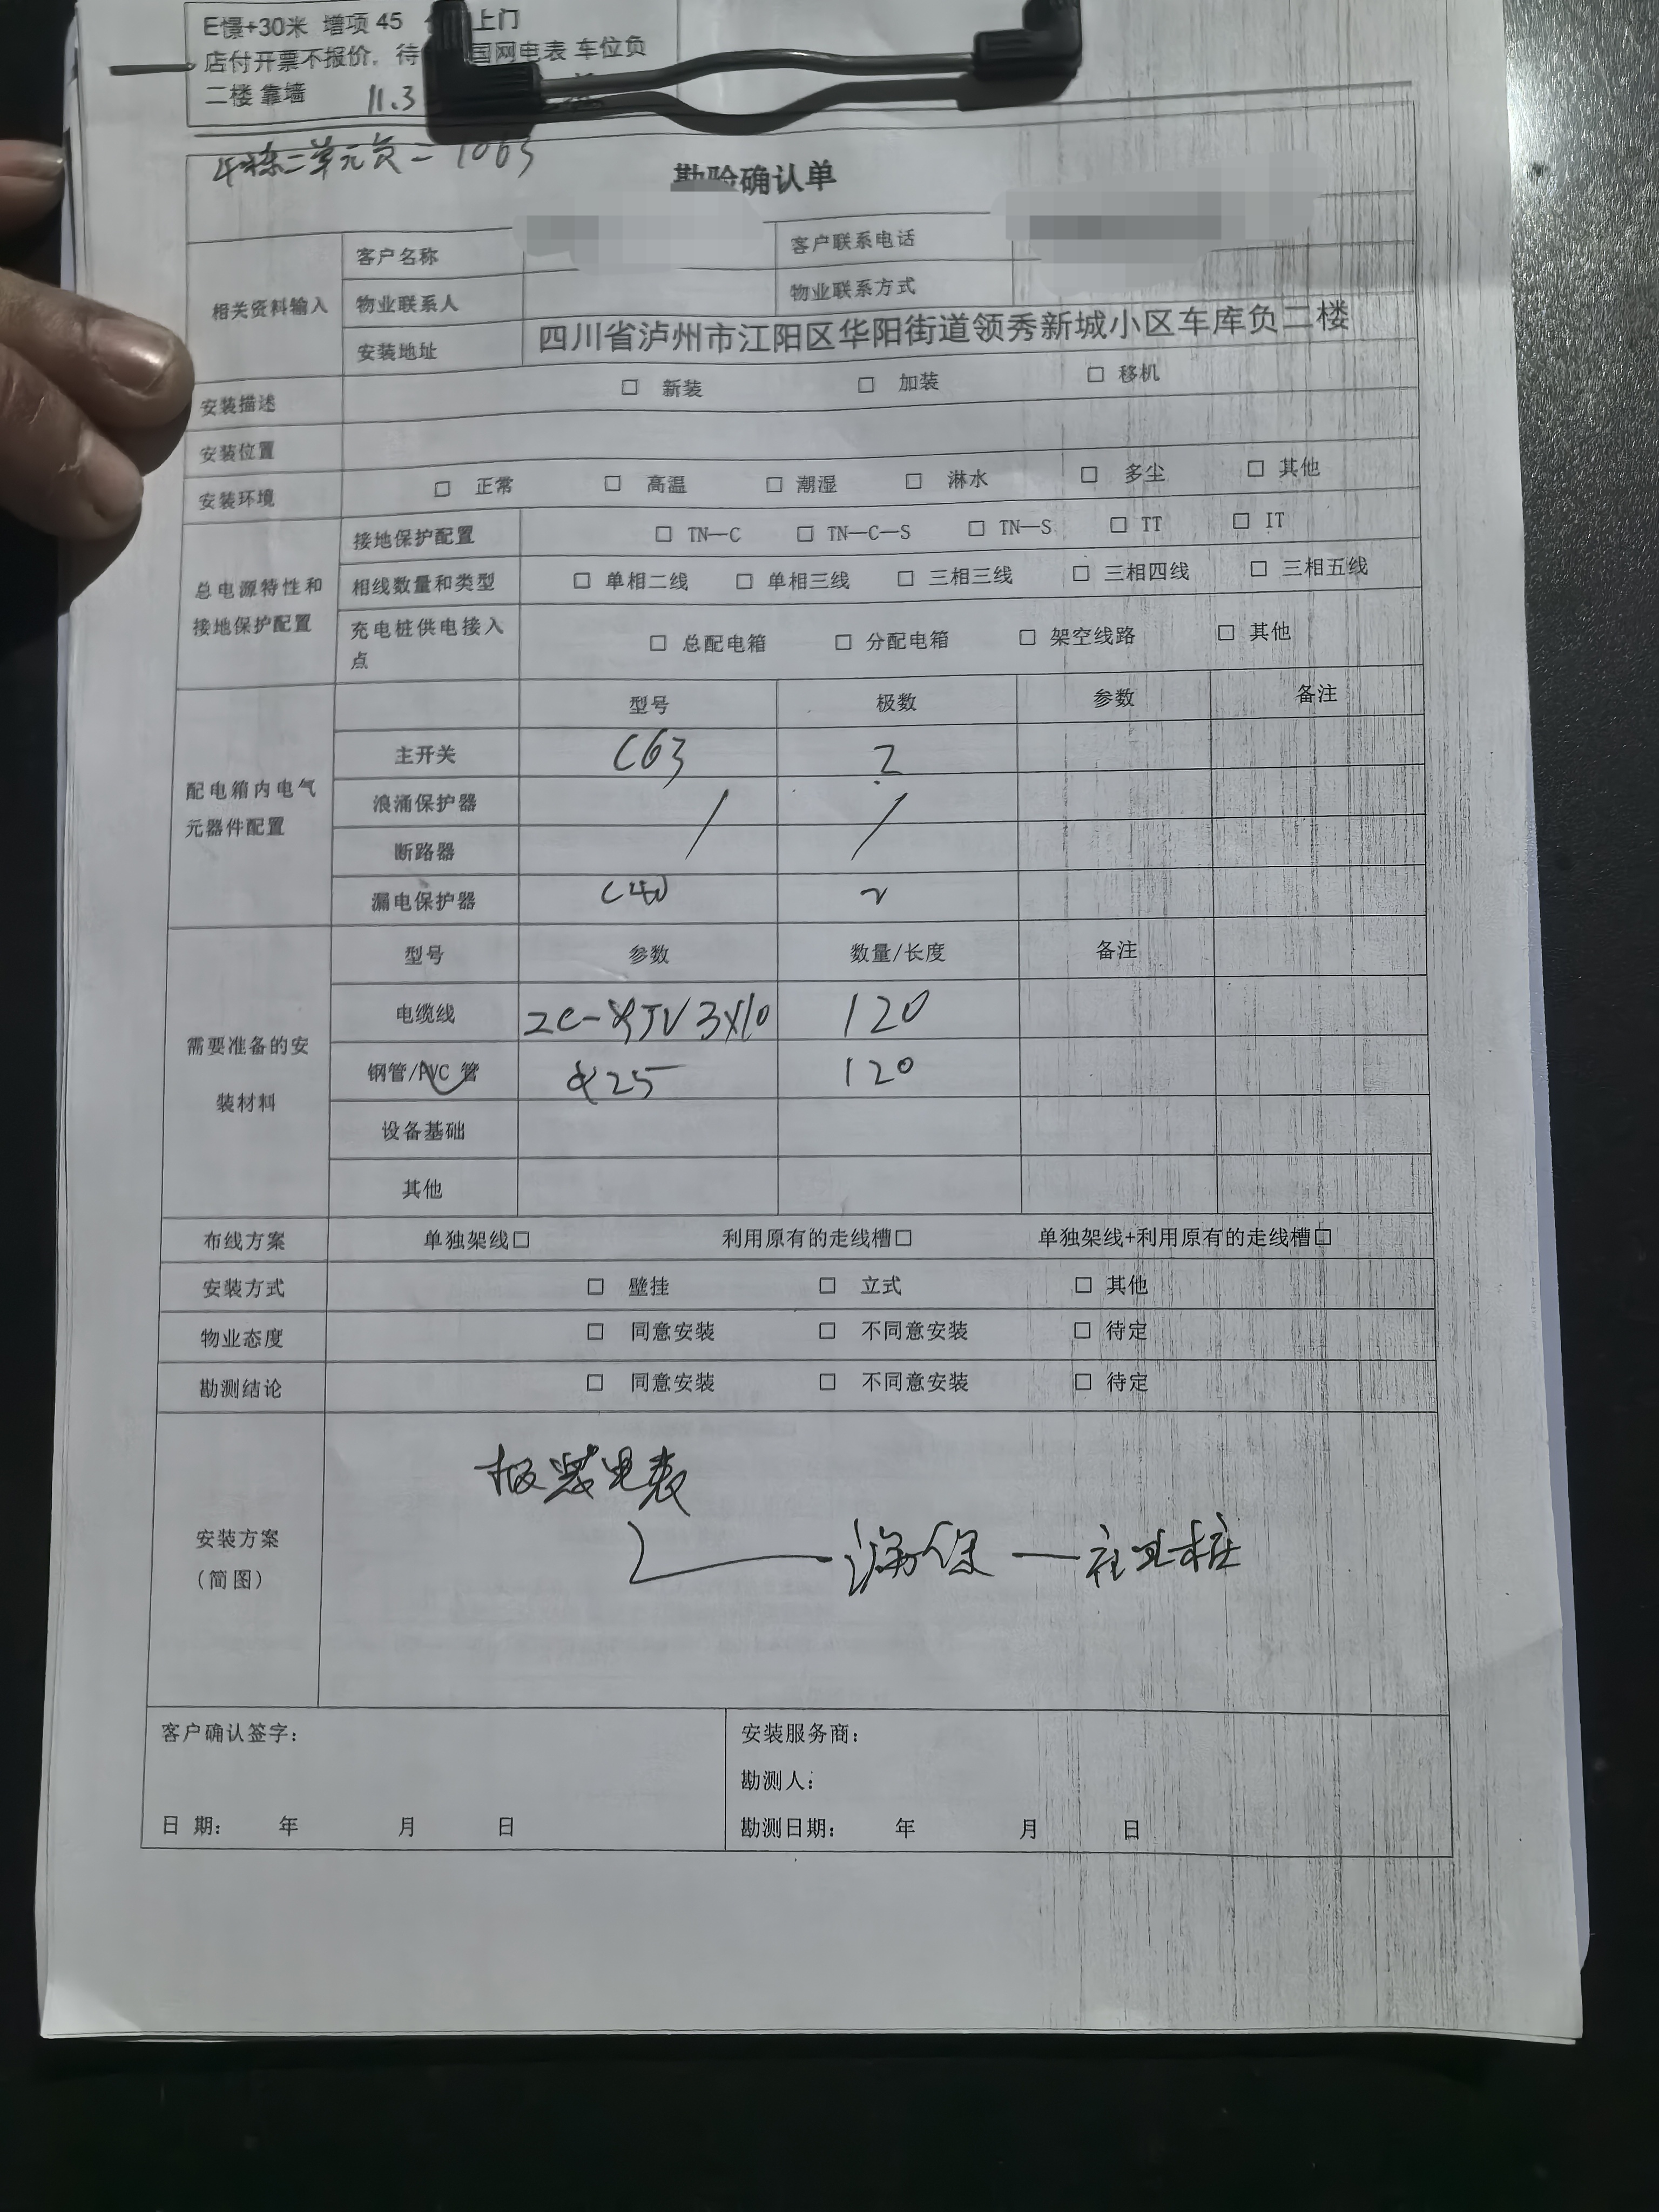 E憬+30米 增项 45 上门
店付开票不报价, 待 国网电表 车位负
二楼 靠墙 11.3
4栋二单元负二 1063
勘验确认单
相关资料输入 客户名称 客户联系电话
物业联系人 物业联系方式
安装地址 四川省泸州市江阳区华阳街道领秀新城小区车库负二楼
安装描述 □ 新装 □ 加装 □ 移机
安装位置
安装环境 □ 正常 □ 高温 □ 潮湿 □ 淋水 □ 多尘 □ 其他
总电源特性和接地保护配置 接地保护配置 □ TN—C □ TN—C—S □ TN—S □ TT □ IT
相线数量和类型 □ 单相二线 □ 单相三线 □ 三相三线 □ 三相四线 □ 三相五线
充电桩供电接入点 □ 总配电箱 □ 分配电箱 □ 架空线路 □ 其他
配电箱内电气元器件配置 型号 极数 参数 备注
主开关 C63 2
浪涌保护器 / /
断路器
漏电保护器 C40 2
需要准备的安装材料 型号 参数 数量/长度 备注
电缆线 ZC-YJV 3X10 120
钢管/PVC 管 φ25 120
设备基础
其他
布线方案 单独架线□ 利用原有的走线槽□ 单独架线+利用原有的走线槽□
安装方式 □ 壁挂 □ 立式 □ 其他
物业态度 □ 同意安装 □ 不同意安装 □ 待定
勘测结论 □ 同意安装 □ 不同意安装 □ 待定
安装方案
(简图)
报装电表
漏保 — 充电桩
客户确认签字: 安装服务商:
勘测人:
日 期: 年 月 日 勘测日期: 年 月 日